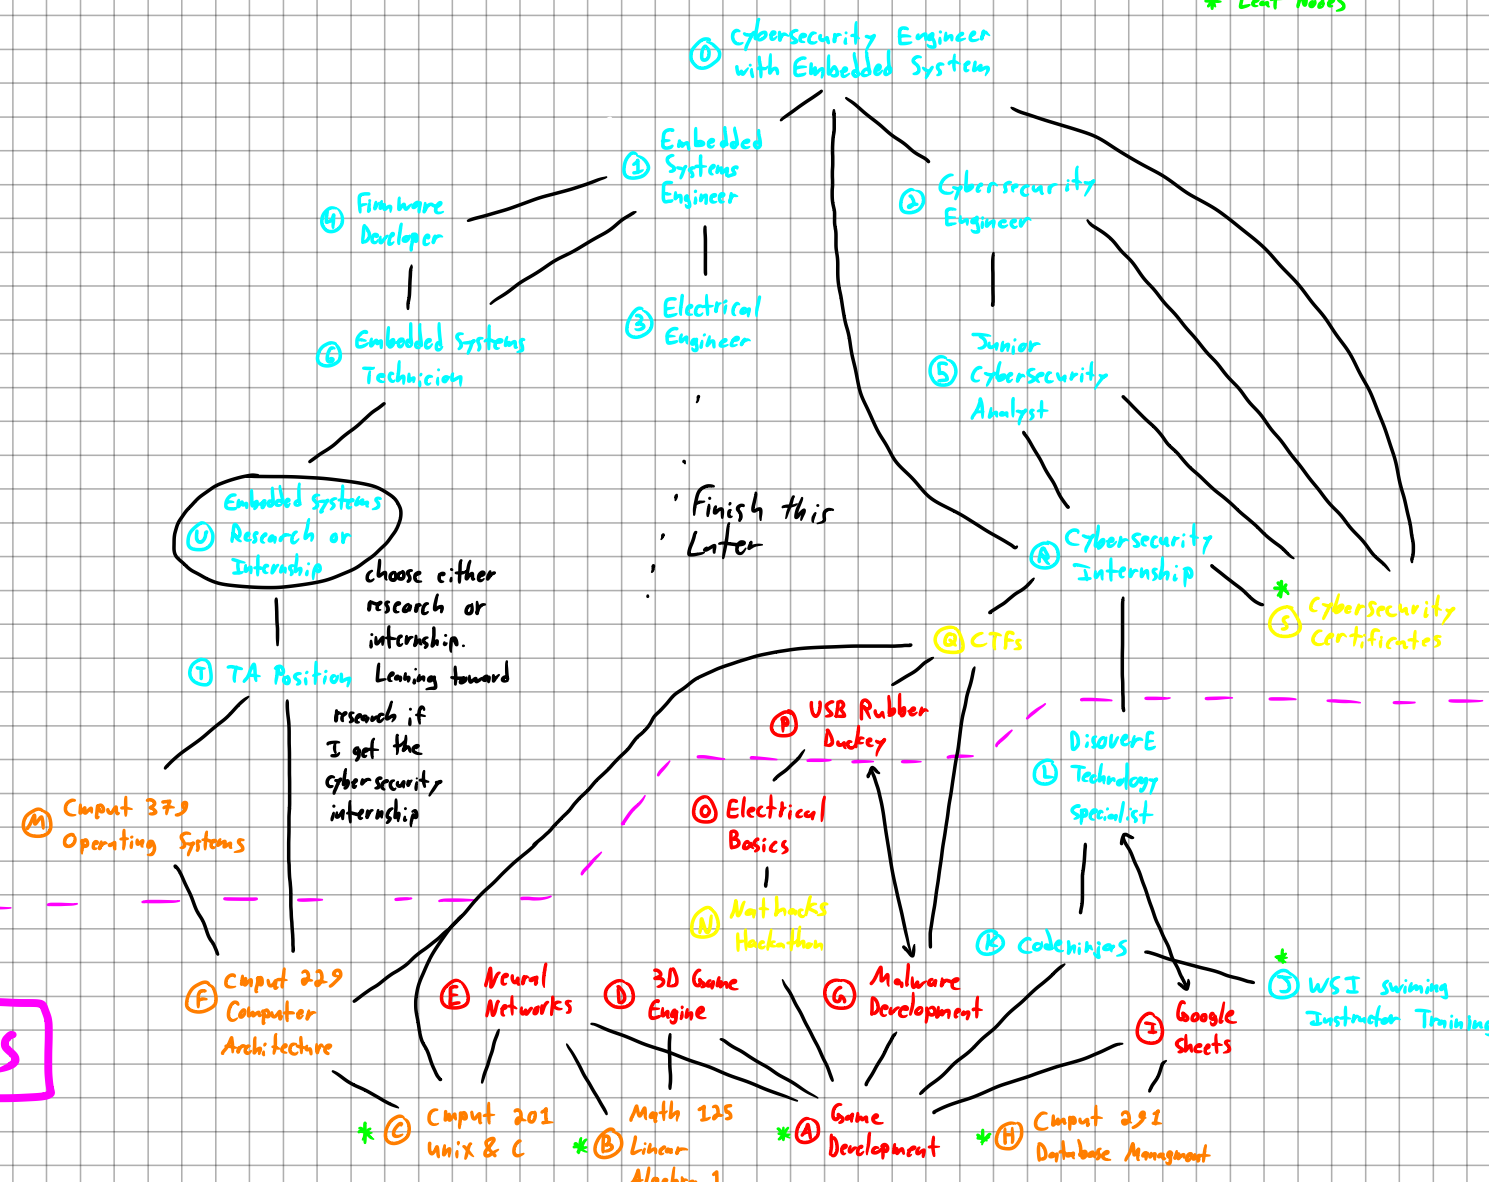 * Leaf Nodes
0 Cybersecurity Engineer
with Embedded System
1 Embedded
Systems
Engineer
2 Cybersecurity
Engineer
4 Firmware
Developer
3 Electrical
Engineer
6 Embedded Systems
Technician
5 Junior
Cybersecurity
Analyst
U Embedded Systems
Research or
Internship
Finish this
Later
R Cybersecurity
Internship
choose either
research or
internship.
Leaning toward
research if
I get the
cybersecurity
internship
* S Cybersecurity
Certificates
Q CTFs
T TA Position
P USB Rubber
Duckey
L DisoverE
Technology
Specialist
M Cmput 379
Operating Systems
O Electrical
Basics
N Nathacks
Hackathon
K Codeninjas
F Cmput 229
Computer
Architecture
E Neural
Networks
D 3D Game
Engine
G Malware
Development
* J WSI swiming
Instructor Training
I Google
sheets
S
* C Cmput 201
Unix & C
* B Math 125
Linear
Algebra 1
* A Game
Development
* H Cmput 291
Database Managment